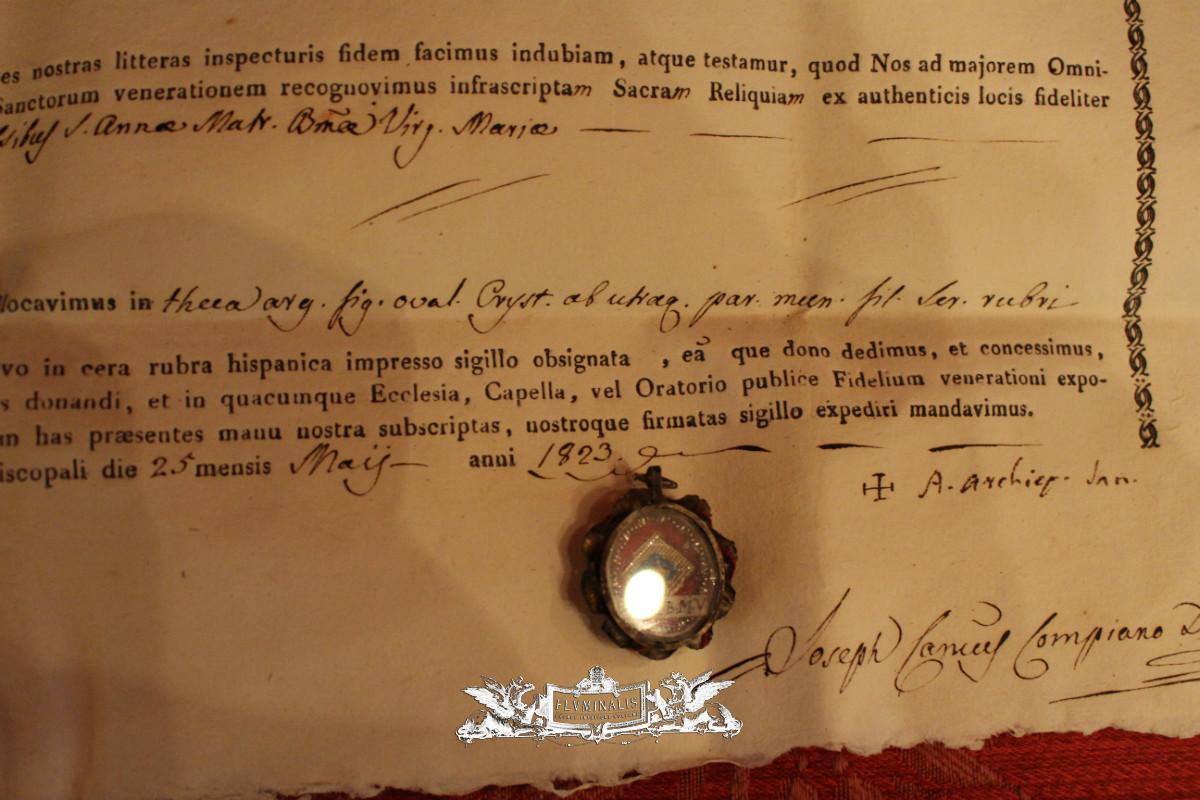 es nostras litteras inspecturis fidem facimus indubiam, atque testamur, quod Nos ad majorem Omni-
Sanctorum venerationem recognovimus infrascriptam Sacram Reliquiam ex authenticis locis fideliter
S. Annæ Matr. Bmæ Virg. Mariæ
locavimus in theca arg. fig. oval. Cryst. ab utraq. par. mun. fil. Ser. rubri
vo in cera rubra hispanica impresso sigillo obsignata , eã que dono dedimus, et concessimus,
s donandi, et in quacumque Ecclesia, Capella, vel Oratorio publice Fidelium venerationi expo-
in has præsentes manu nostra subscriptas, nostroque firmatas sigillo expediri mandavimus.
iscopali die 25 mensis Maij anni 1823.
✠ A. Archiep. Jan.
B.M.V
Joseph Compiano
FLVMINALIS